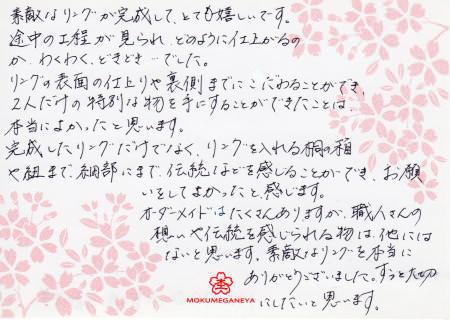 素敵なリングが完成して、とても嬉しいです。
途中の工程が見られ、どのように仕上がるの
か、わくわく、どきどき…でした。
リングの表面の仕上りや裏側までにこだわることができ、
2人だけの特別な物を手にすることができたことは、
本当によかったと思います。
完成したリングだけでなく、リングを入れる桐の箱
や紐まで、細部にまで、伝統などを感じることができ、お願
いをしてよかったと、感じます。
オーダーメイドはたくさんありますが、職人さんの
想いや伝統を感じられる物は、他には
ないと思います。素敵なリングを本当に
ありがとうございました。ずっと大切
にしたいと思います。
MOKUMEGANEYA